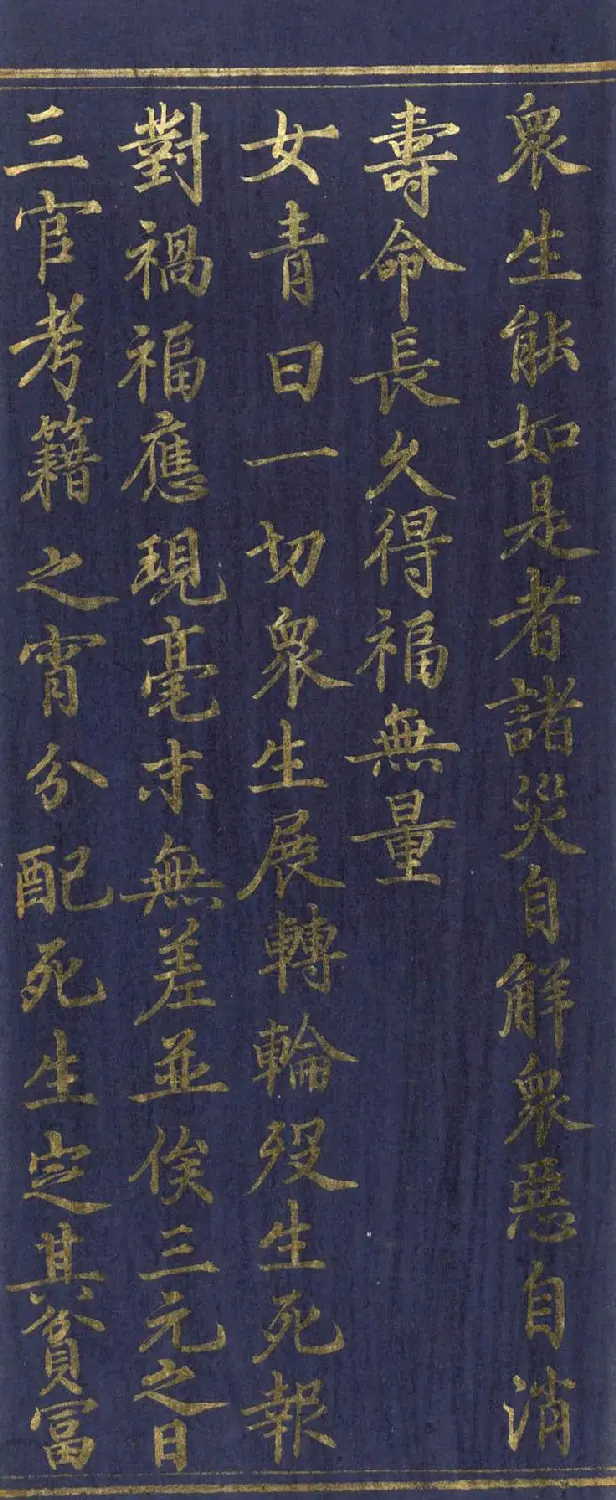 衆生能如是者諸災自解衆惡自消
壽命長久得福無量
女青曰一切衆生展轉輪歿生死報
對禍福應現毫末無差並俟三元之日
三官考籍之宵分配死生定其貧富